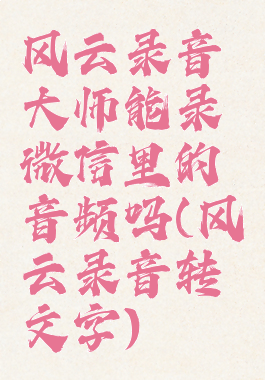 风云录音
大师能录
微信里的
音频吗(风
云录音转
文字)